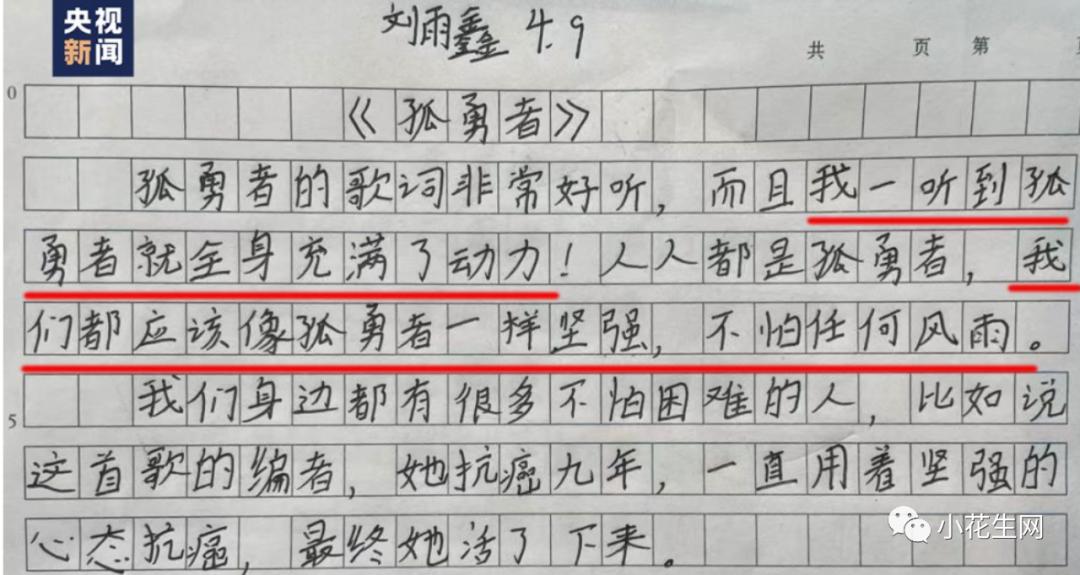 央视
新闻
刘雨鑫 4.9
共 页 第
0
《孤勇者》
孤勇者的歌词非常好听，而且我一听到孤
勇者就全身充满了动力！人人都是孤勇者，我
们都应该像孤勇者一样坚强，不怕任何风雨。
我们身边都有很多不怕困难的人，比如说
5
这首歌的编者，她抗癌九年，一直用着坚强的
心态抗癌，最终她活了下来。
小花生网